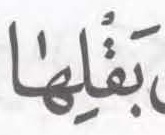 بَقْلِهَا